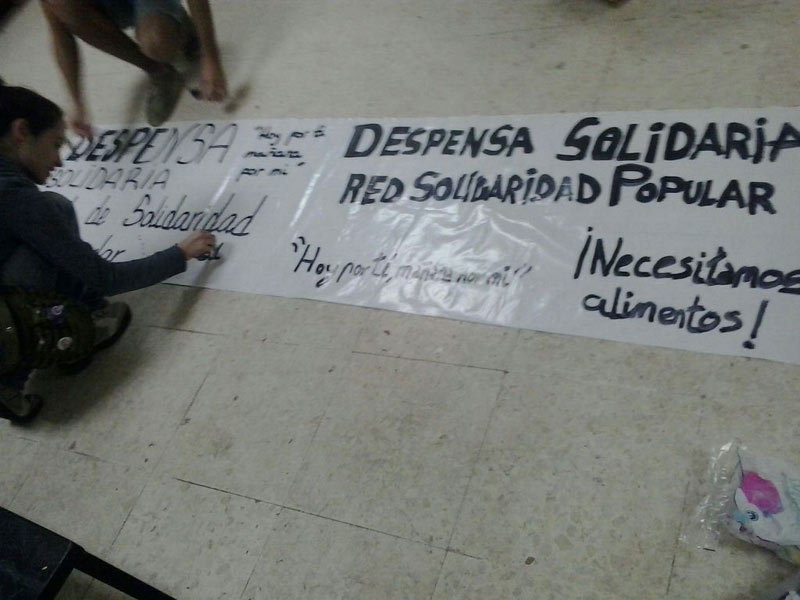 DESPENSA
SOLIDARIA
de Solidaridad
"Hoy por ti
mañana
por mi"
DESPENSA SOLIDARIA
RED SOLIDARIDAD POPULAR
"Hoy por ti, mañana por mi"
¡Necesitamos
alimentos!